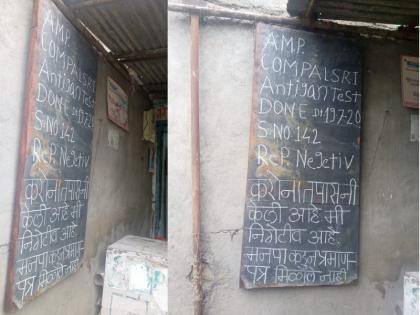 A.M.P.
COMPALSRI
Antigan Test
DONE Dt 19-7-20
S.NO 142
ReP. Negetiv
करोना तपासनी
केली आहे मी
निगेटीव आहे
मनपा कडुन प्रमाण-
पत्र मिळाले नाही
A.M.P.
COMPALSRI
Antigan Test
DONE Dt 19-7-20
S.NO 142
ReP. Negetiv
करोना तपासनी
केली आहे मी
निगेटीव आहे
मनपा कडुन प्रमाण-
पत्र मिळाले नाही